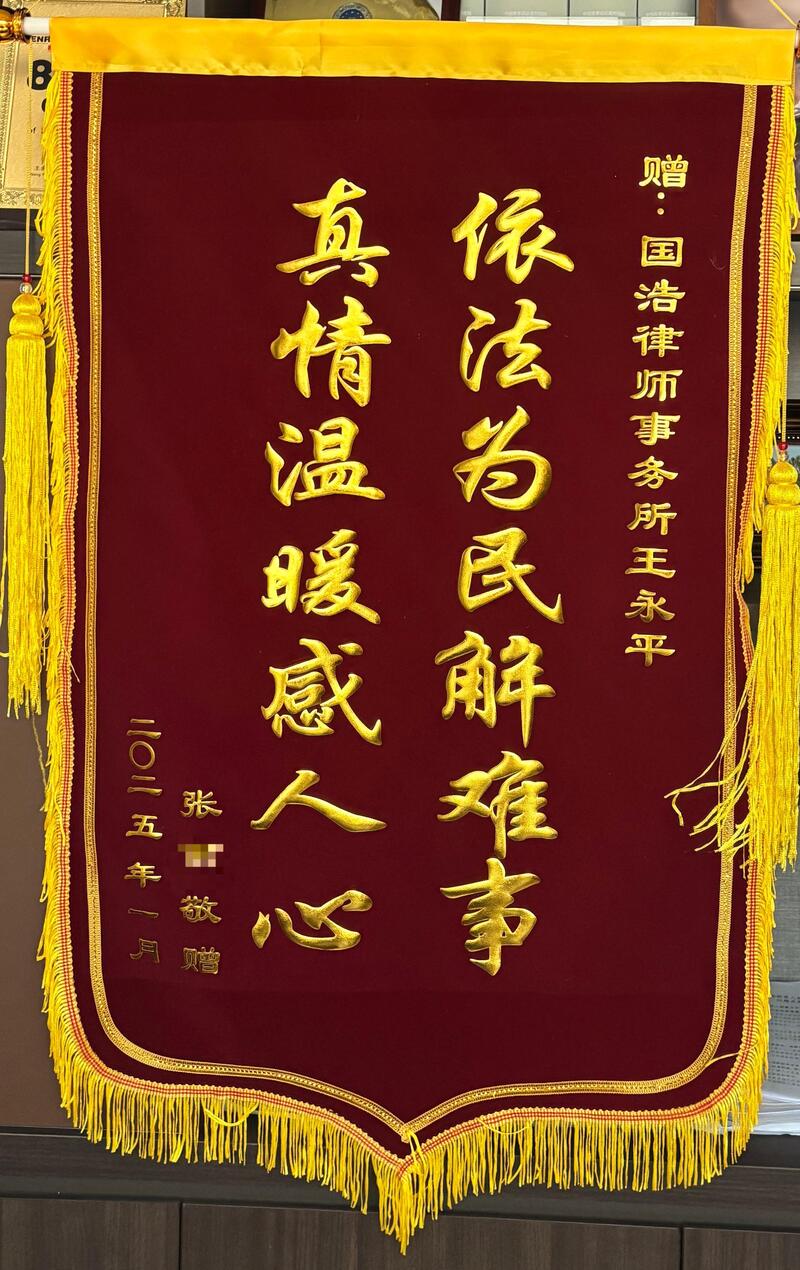 赠：国浩律师事务所王永平
依法为民解难事
真情温暖感人心
张 敬赠
二〇二五年一月